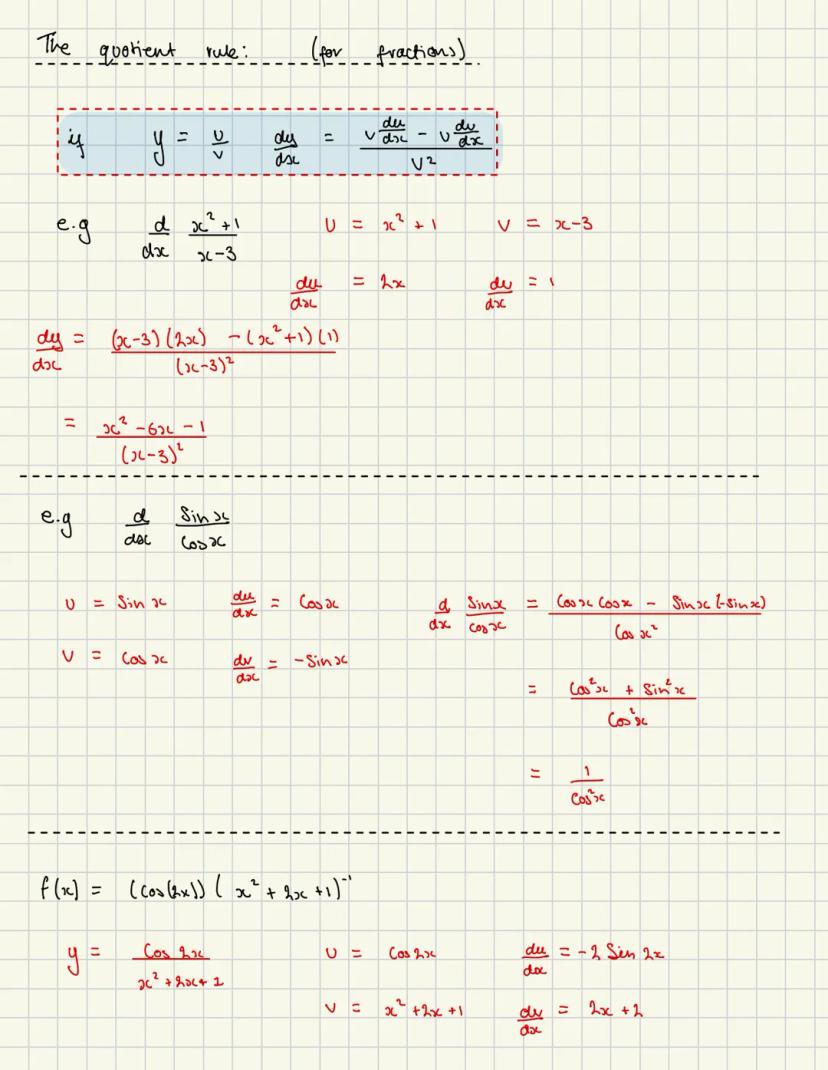 The quotient rule: (for fractions)
if y = u/v dy/dx = (v du/dx - u dv/dx)/v²
e.g d/dx (x²+1)/(x-3) U = x² + 1 V = x-3
du/dx = 2x dv/dx = 1
dy/dx = ((x-3)(2x) - (x²+1)(1))/(x-3)²
= (x² - 6x - 1)/(x-3)²
e.g d/dx Sin x/Cos x
U = Sin x du/dx = Cos x d/dx Sinx/cos x = (Cos x Cos x - Sin x (-sin x))/Cos x²
V = Cos x dv/dx = - Sin x
= (Cos²x + Sin²x)/Cos²x
= 1/Cos²x
f(x) = (cos(2x)) ( x² + 2x +1)⁻¹
y = Cos 2x/(x² + 2x + 1) U = Cos 2x du/dx = -2 Sin 2x
V = x² + 2x +1 dv/dx = 2x + 2